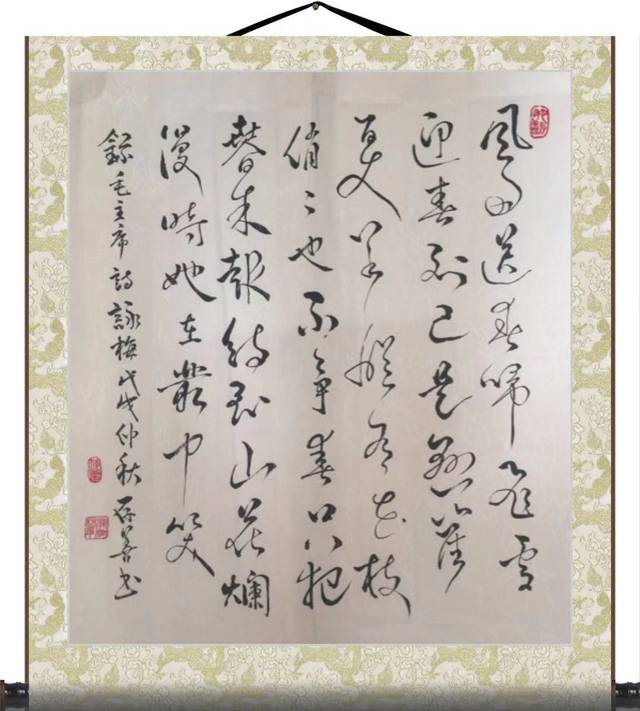 風雨送春歸飛雪
迎春到已是懸崖
百丈冰猶有花枝
俏〻也不争春只把
春来報待到山花爛
漫時她在叢中笑
錄毛主席詩詠梅戊戌仲秋书